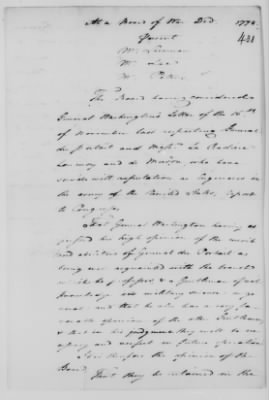 At a Board of War Decd. 1778
Present 431
Mr.
Mr. Lee
Mr. Peters
The Board having considered
General Washington's Letter of the 16th
of November last respecting General
du Portail and Messrs. La Radiere
Launoy and de Murnon, who have
served with reputation as Engineers in
the army of the United States, report
to Congress
That General Washington having ex-
pressed his high opinion of the merit
and abilities of General du Portail as
being well acquainted with the
of & a Gentleman of
knowledge in military
and that he has a very fa-
vorable opinion of the other Gentlemen,
& that in his judgment they will be ne-
cessary and useful in future operations
It is therefore the opinion of the
Board
That they be retained in the